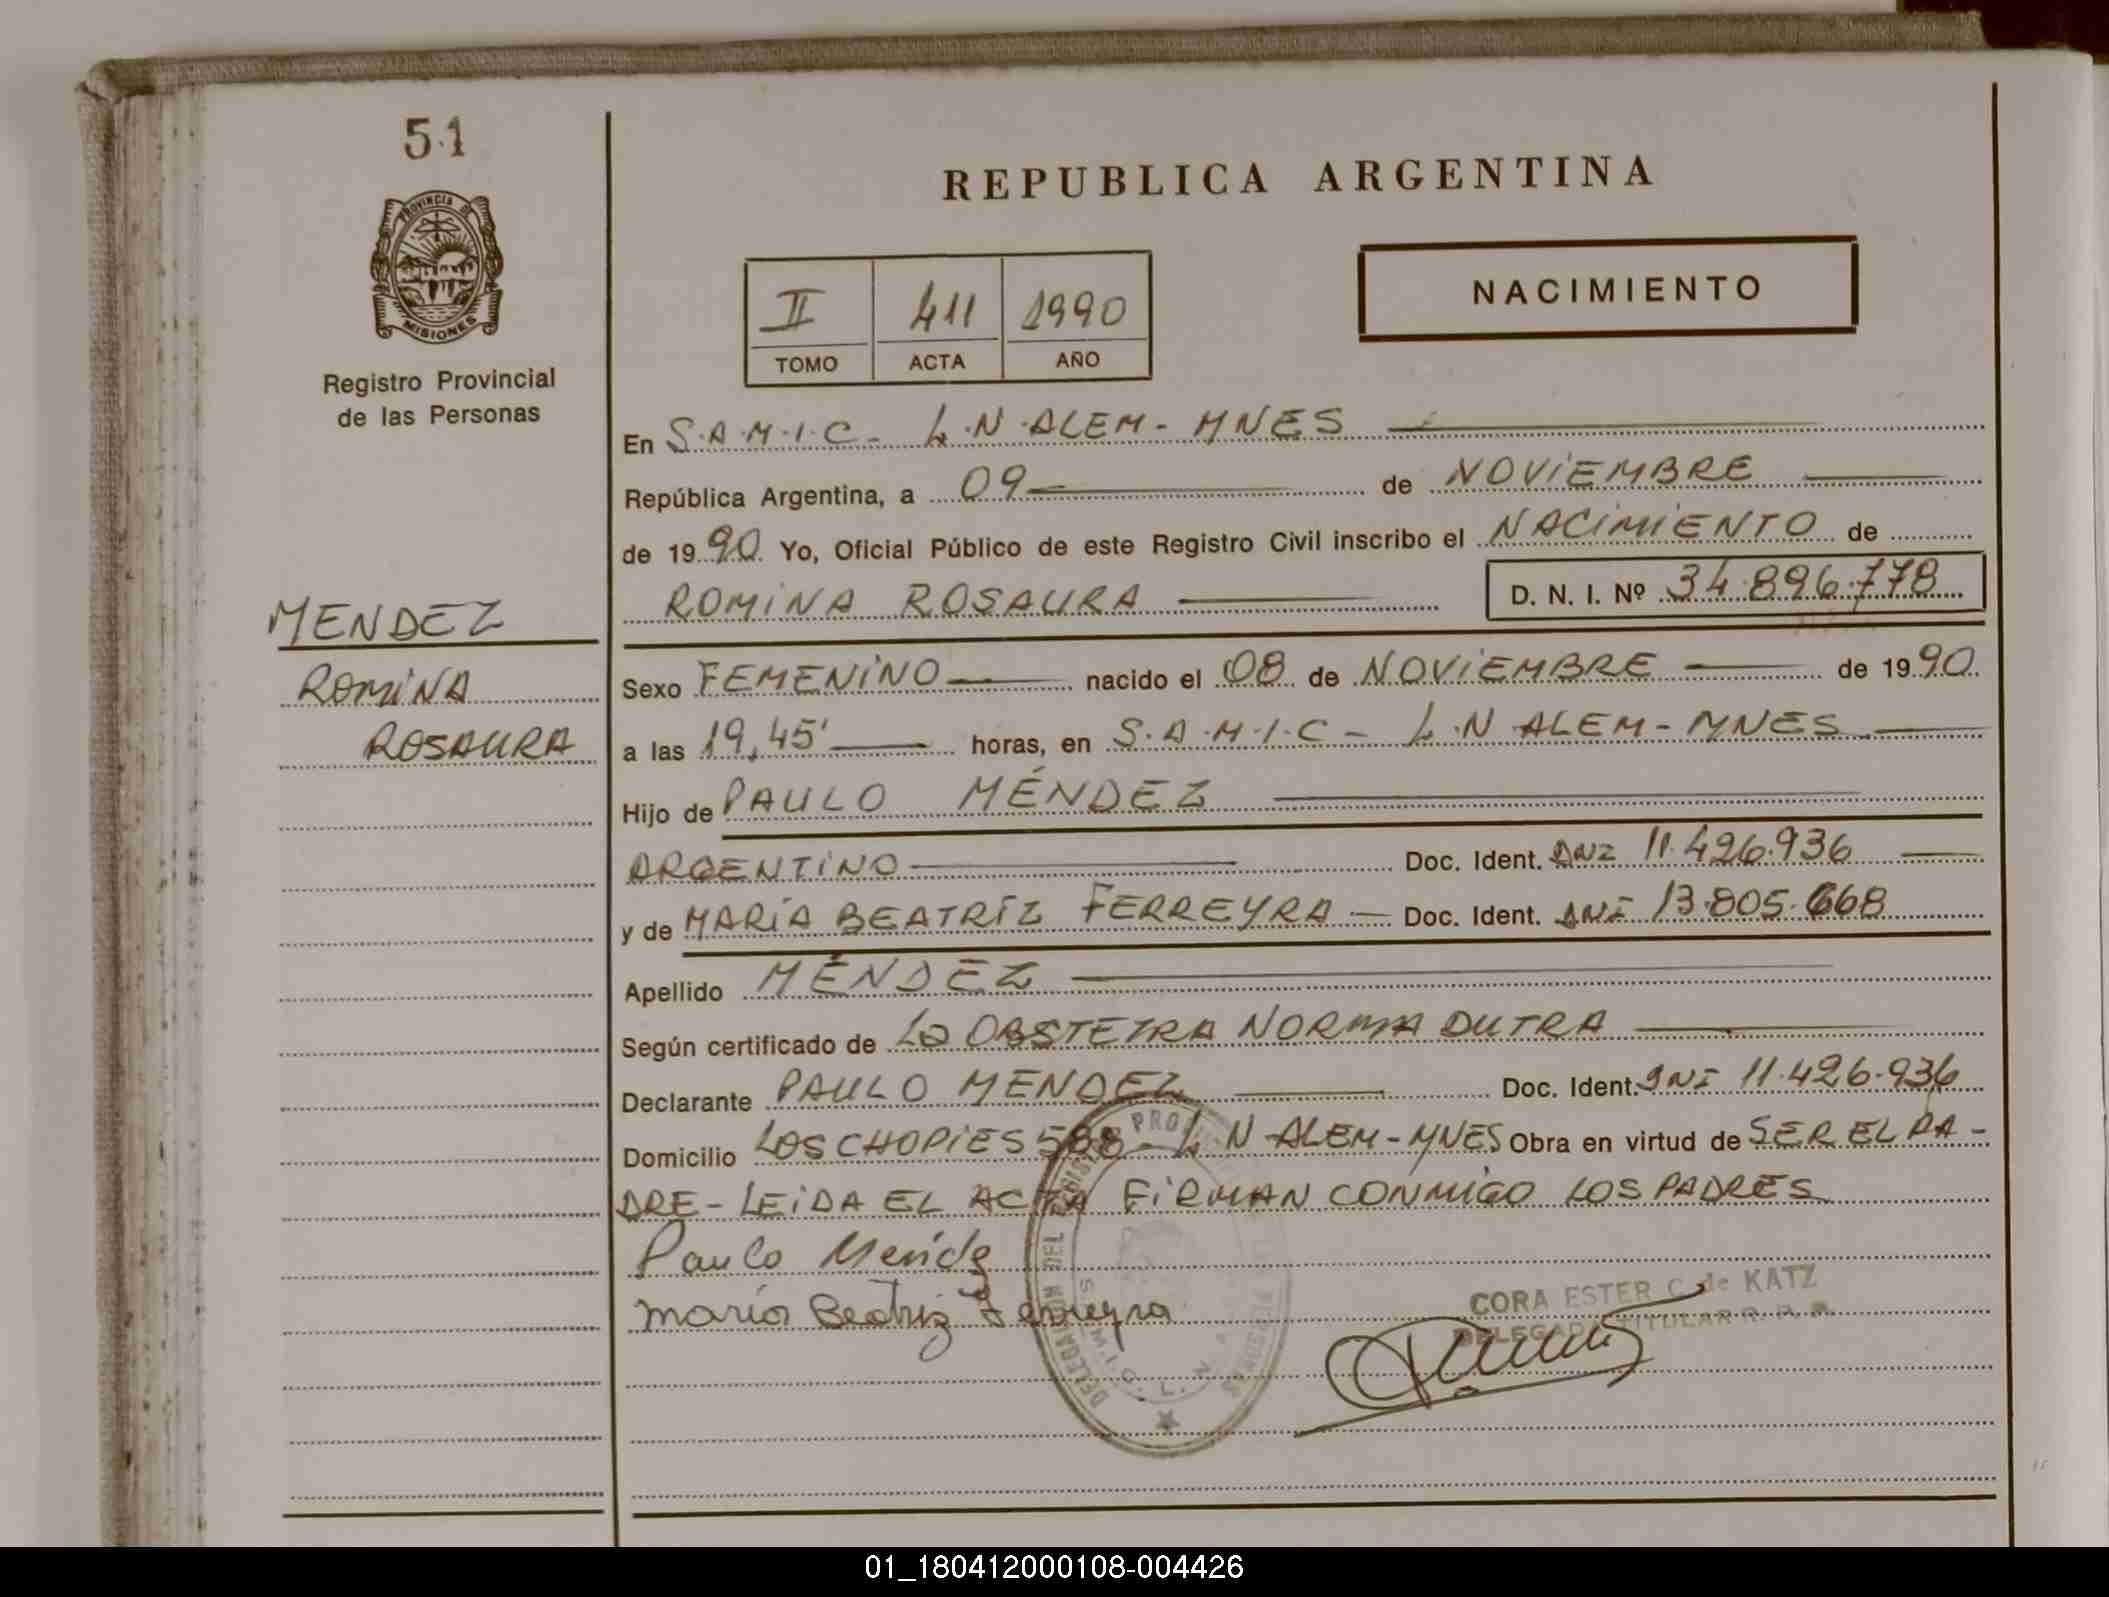 51
PROVINCIA DE
MISIONES
Registro Provincial
de las Personas
MENDEZ
ROMINA
ROSAURA
REPUBLICA ARGENTINA
II 411 1990
TOMO ACTA AÑO
NACIMIENTO
En S.A.M.I.C- L.N.ALEM-MNES
República Argentina, a 09 de NOVIEMBRE
de 1990. Yo, Oficial Público de este Registro Civil inscribo el NACIMIENTO de
ROMINA ROSAURA D. N. I. Nº 34.896.778
Sexo FEMENINO nacido el 08 de NOVIEMBRE de 1990.
a las 19,45' horas, en S.A.M.I.C- L.N ALEM-MNES
Hijo de PAULO MÉNDEZ
ARGENTINO Doc. Ident. DNI 11.426.936
y de MARÍA BEATRÍZ FERREYRA Doc. Ident. DNI 13.805.668
Apellido MÉNDEZ
Según certificado de La OBSTETRA NORMA DUTRA
Declarante PAULO MENDEZ Doc. Ident. DNI 11.426.936
Domicilio LOS CHOPIES 588 - L.N-ALEM-MNES Obra en virtud de SER EL PA-
DRE-LEIDA EL ACTA FIRMAN CONMIGO LOS PADRES
Paulo Mendez
María Beatriz Ferreyra
CORA ESTER C. de KATZ
DELEGADA TITULAR R. P. P.
DELEGACIÓN DEL REGISTRO PROVINCIAL DE LAS PERSONAS
S.A.M.I.C. L. N. A
01_180412000108-004426